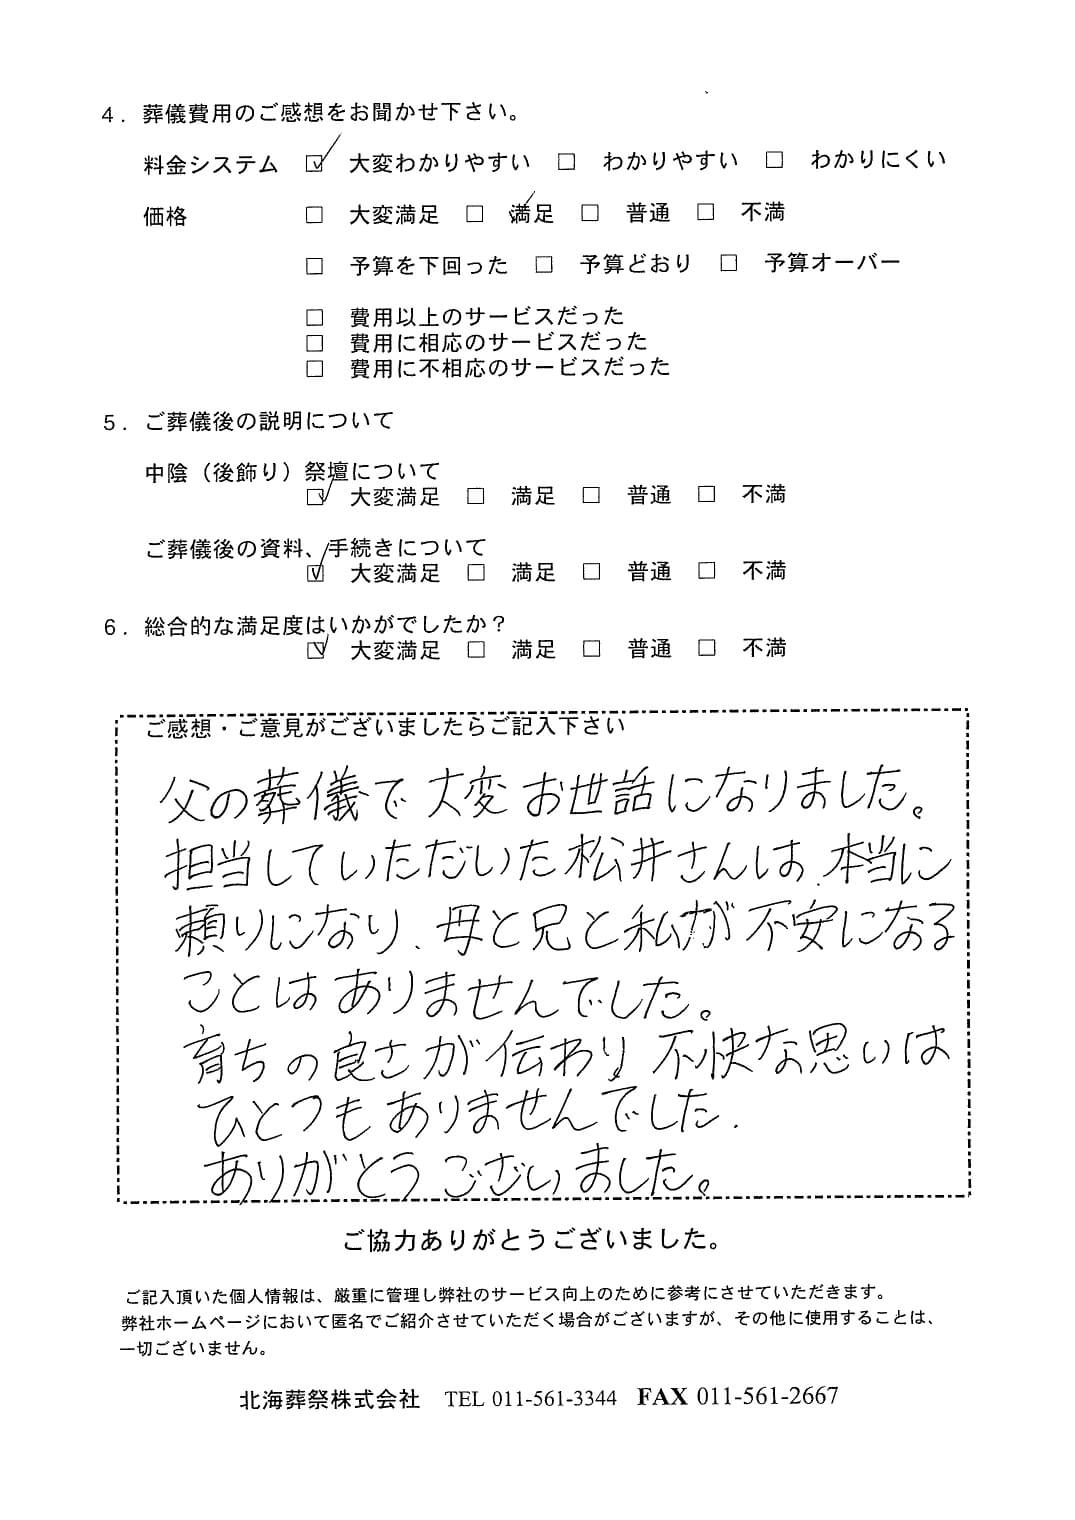 4．葬儀費用のご感想をお聞かせ下さい。
料金システム ☑ 大変わかりやすい □ わかりやすい □ わかりにくい
価格 □ 大変満足 □ 満足 □ 普通 □ 不満
□ 予算を下回った □ 予算どおり □ 予算オーバー
□ 費用以上のサービスだった
□ 費用に相応のサービスだった
□ 費用に不相応のサービスだった
5．ご葬儀後の説明について
中陰（後飾り）祭壇について
☑ 大変満足 □ 満足 □ 普通 □ 不満
ご葬儀後の資料、手続きについて
☑ 大変満足 □ 満足 □ 普通 □ 不満
6．総合的な満足度はいかがでしたか？
☑ 大変満足 □ 満足 □ 普通 □ 不満
ご感想・ご意見がございましたらご記入下さい
父の葬儀で大変お世話になりました。
担当していただいた松井さんは、本当に
頼りになり、母と兄と私が不安になる
ことはありませんでした。
育ちの良さが伝わり不快な思いは
ひとつもありませんでした.
ありがとうございました。
ご協力ありがとうございました。
ご記入頂いた個人情報は、厳重に管理し弊社のサービス向上のために参考にさせていただきます。
弊社ホームページにおいて匿名でご紹介させていただく場合がございますが、その他に使用することは、
一切ございません。
北海葬祭株式会社 TEL 011-561-3344 FAX 011-561-2667